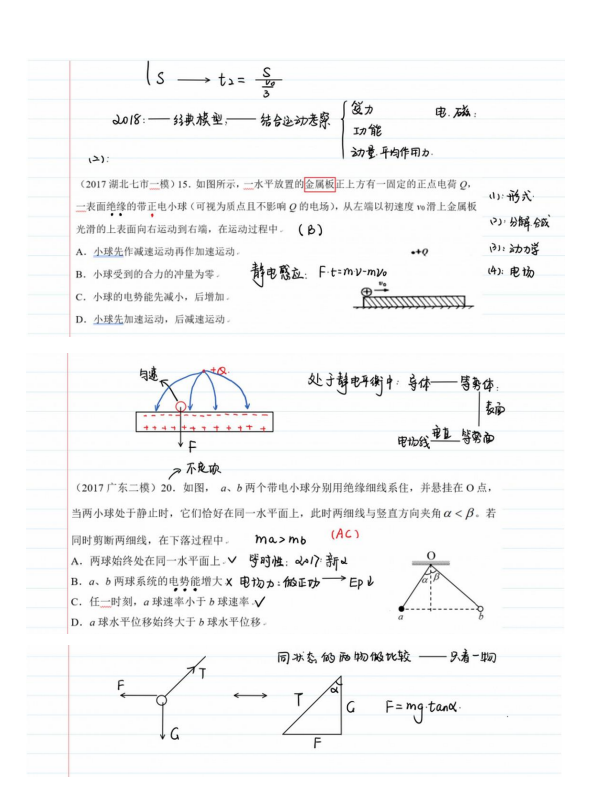 S → t₂ = S/(v₀/3)
2018: — 经典模型, — 结合运动考察 { 受力 电.磁:
功能
动量.平均作用力.
(2):
(2017 湖北七市一模) 15. 如图所示，一水平放置的金属板正上方有一固定的正点电荷 Q，
一表面绝缘的带正电小球（可视为质点且不影响 Q 的电场），从左端以初速度 v₀ 滑上金属板
光滑的上表面向右运动到右端，在运动过程中. (B)
(1): 形式.
(2): 分解合成
(3): 动力学
(4): 电场
A．小球先作减速运动再作加速运动.
B．小球受到的合力的冲量为零.
静电感应: F·t=mv-mv₀
C．小球的电势能先减小，后增加.
D．小球先加速运动，后减速运动.
+Q
⊕ v₀
匀速
+Q.
F
处于静电平衡中: 导体 — 等势体:
表面
电场线 垂直 等势面
不免欧
(2017 广东二模) 20. 如图， a、b 两个带电小球分别用绝缘细线系住，并悬挂在 O 点，
当两小球处于静止时，它们恰好在同一水平面上，此时两细线与竖直方向夹角 α < β。若
同时剪断两细线，在下落过程中. ma>mb (AC)
A．两球始终处在同一水平面上. ✓ 等时性: 2017. 新2
B．a、b 两球系统的电势能增大 x 电场力: 做正功 → Ep↓
C．任一时刻，a 球速率小于 b 球速率. ✓
D．a 球水平位移始终大于 b 球水平位移.
O
α β
a b
同状态的两物做比较 — 只看一物
F T G
T α G F
F=mg·tanα.